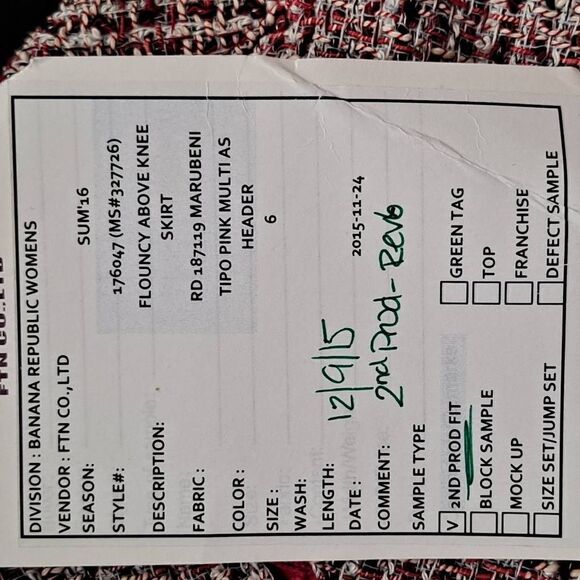 FTN CO.,LTD
DIVISION : BANANA REPUBLIC WOMENS
VENDOR : FTN CO.,LTD
SEASON: SUM'16
STYLE#: 176047 (MS#327726)
DESCRIPTION: FLOUNCY ABOVE KNEE
SKIRT
FABRIC : RD 187119 MARUBENI
COLOR : TIPO PINK MULTI AS
HEADER
SIZE : 6
WASH:
LENGTH:
DATE : 12/9/15 2015-11-24
COMMENT: 2nd Prod - Rev6
SAMPLE TYPE
V 2ND PROD FIT GREEN TAG
BLOCK SAMPLE TOP
MOCK UP FRANCHISE
SIZE SET/JUMP SET DEFECT SAMPLE